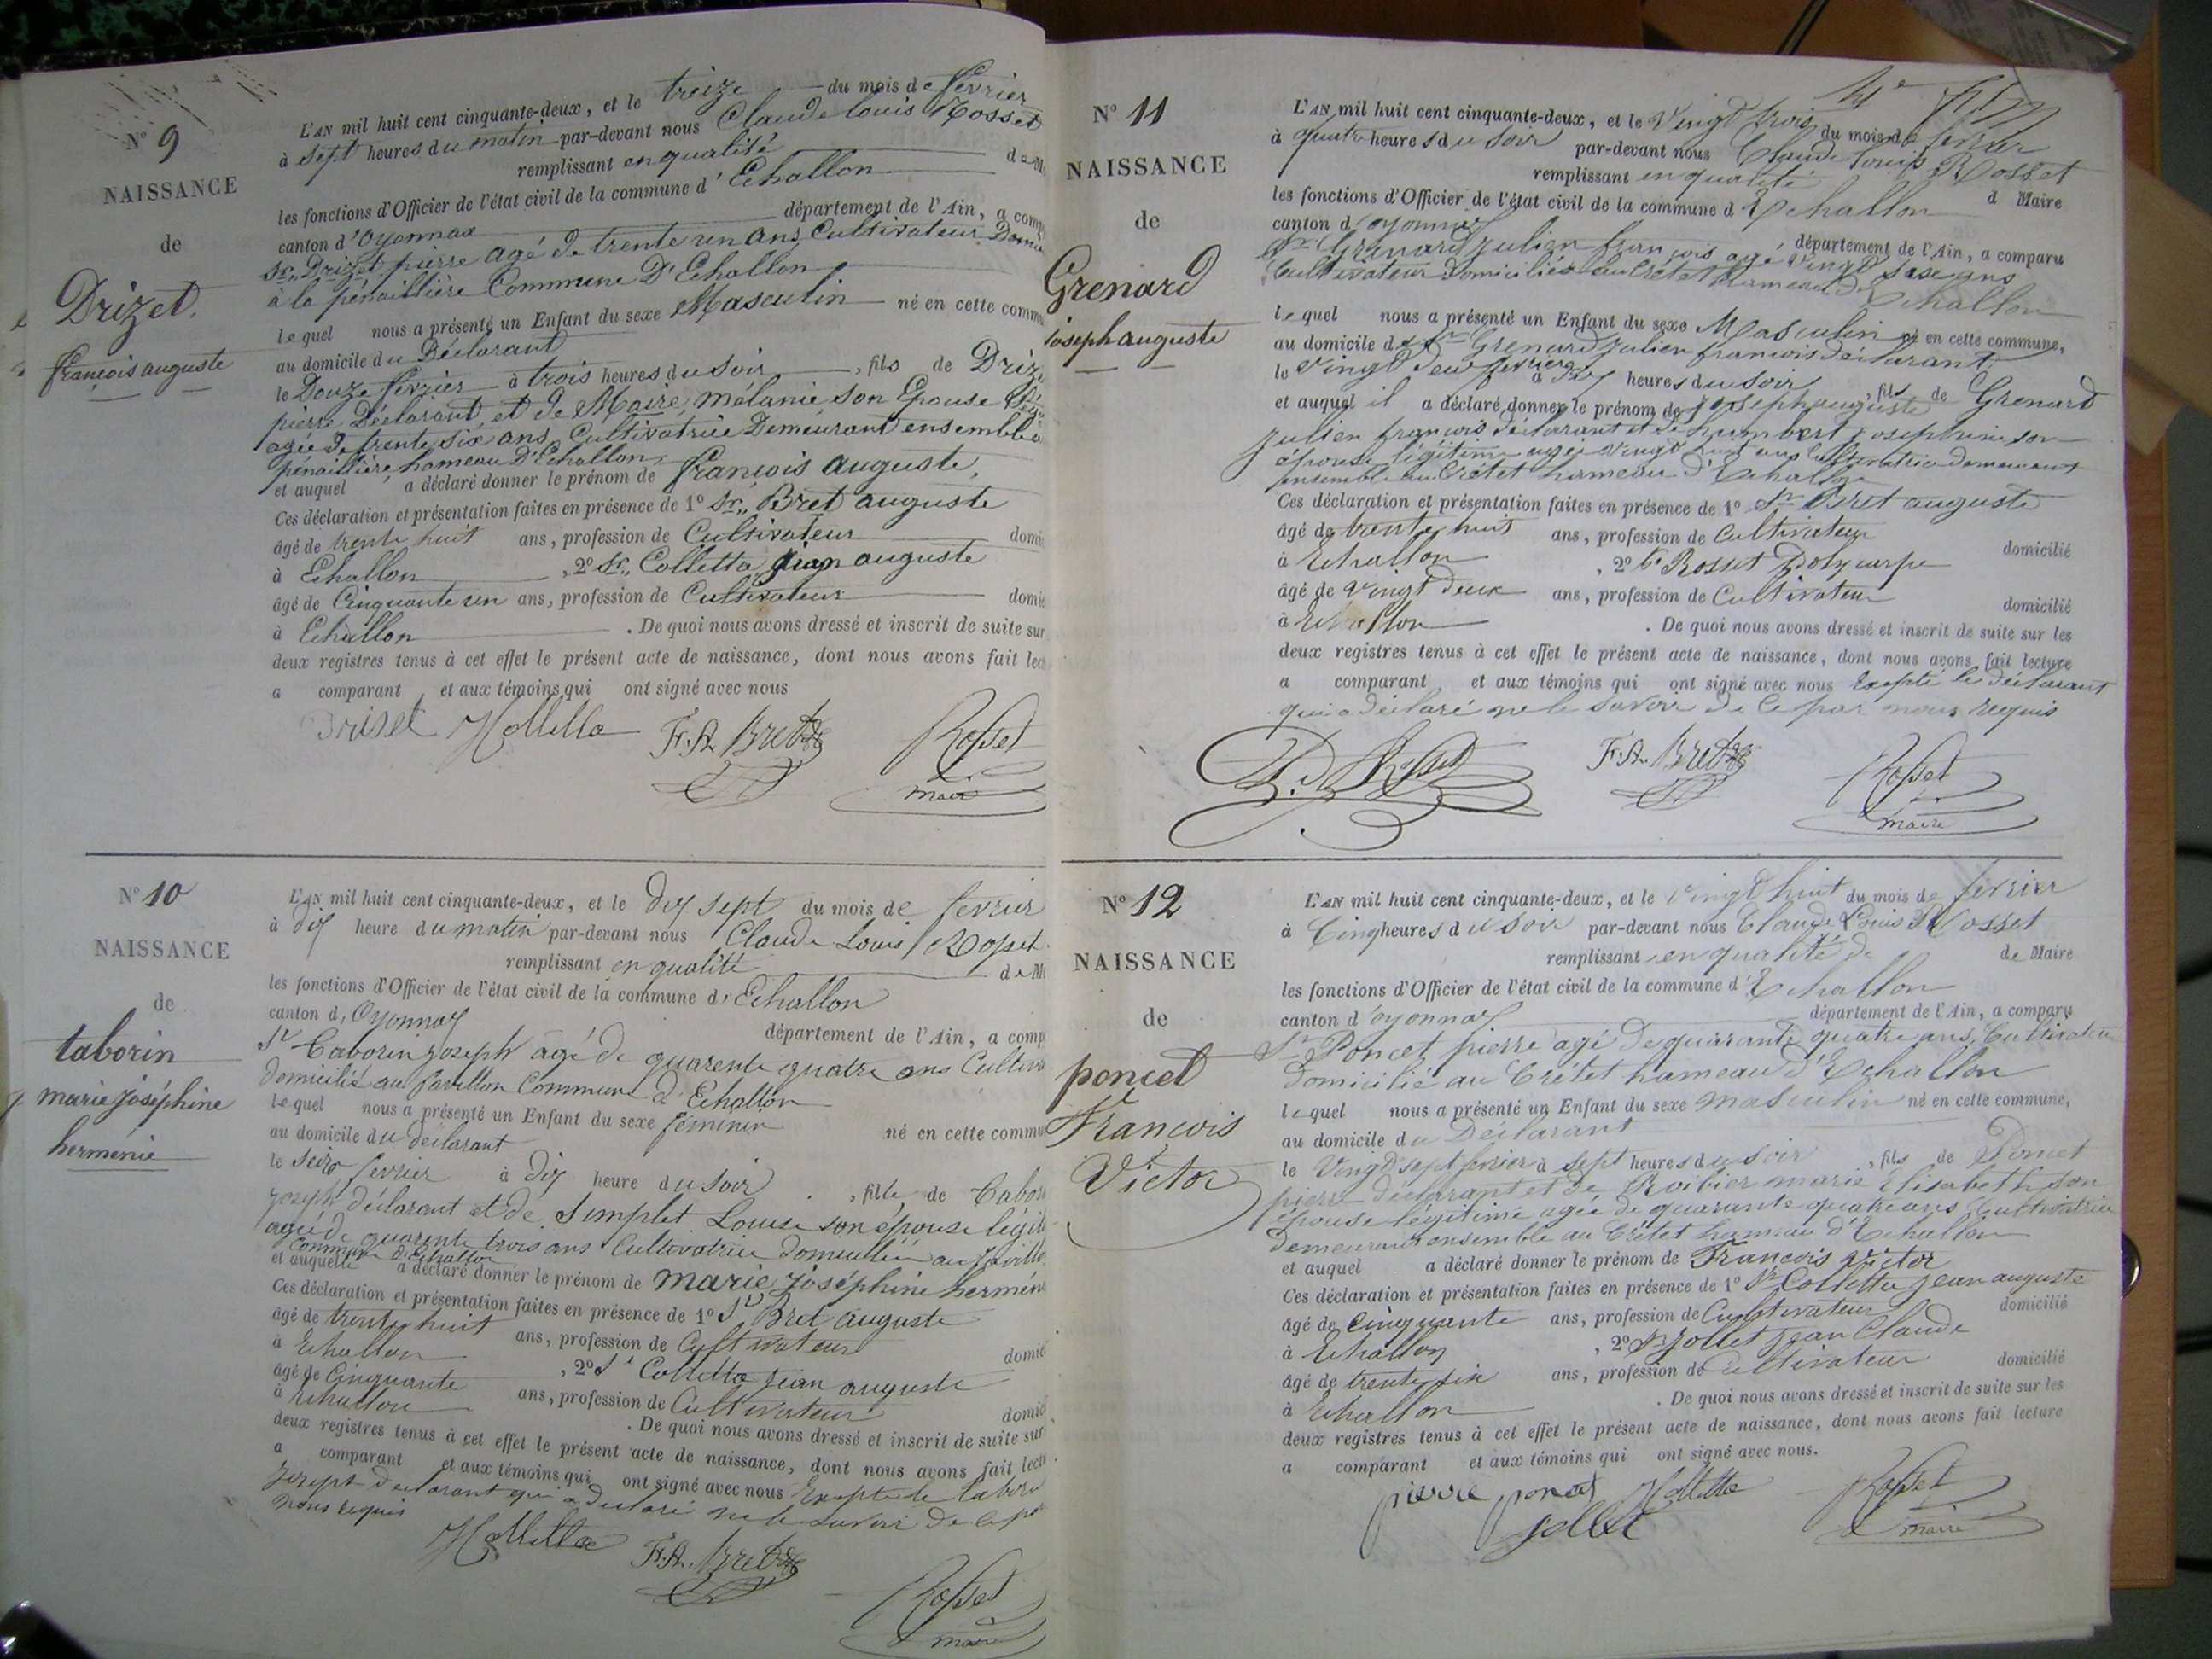 N° 9
NAISSANCE
de
Drizet
françois auguste
L'AN mil huit cent cinquante-deux, et le treize du mois de février
à sept heures du matin par-devant nous Claude louis Rosset
remplissant en qualité de M
les fonctions d'Officier de l'état civil de la commune d'Echallon
canton d'Oyonnax département de l'Ain, a comp
Sr. Drizet pierre agé de trente un ans, Cultivateur Domi
a la pénaillière Commune D'Echallon
lequel nous a présenté un Enfant du sexe Masculin né en cette commu
au domicile du Déclarant
le Douze février à trois heures du soir, fils de Driz
pierre Déclarant, et de Maire, mélanie son Epouse
agée de trente six ans, Cultivatrice Demeurant ensemble a
pénaillière, hameau D'Echallon,
et auquel a déclaré donner le prénom de françois auguste,
Ces déclaration et présentation faites en présence de 1° Sr. Bret auguste
âgé de trente huit ans, profession de Cultivateur domi
à Echallon, 2° Sr. Colletta jean auguste
âgé de Cinquante un ans, profession de Cultivateur domi
à Echallon. De quoi nous avons dressé et inscrit de suite sur
deux registres tenus à cet effet le présent acte de naissance, dont nous avons fait lec
a comparant et aux témoins qui ont signé avec nous
Driset Colletta F.A. Bret Rosset
maire
N° 10
NAISSANCE
de
taborin
marie joséphine
herménie
L'AN mil huit cent cinquante-deux, et le dix sept du mois de fevrier
à dix heure du matin par-devant nous Claude Louis Rosset
remplissant en qualité de M
les fonctions d'Officier de l'état civil de la commune d'Echallon
canton d'Oyonnax département de l'Ain, a comp
Sr Taborin joseph agé de quarente quatre ans Cultiva
domicilié au favillon Commune d'Echallon
lequel nous a présenté un Enfant du sexe féminin né en cette commu
au domicile du déclarant
le seize fevrier à dix heure du soir, fille de Tabor
joseph déclarant et de Simplet Louise son épouse légit
agée de quarente trois ans Cultivatrice domiciliée au faville
Commune d'Echallon
et auquelle a déclaré donner le prénom de marie joséphine hermén
Ces déclaration et présentation faites en présence de 1° Sr Bret auguste
âgé de trente huit ans, profession de Cultivateur domi
à Echallon, 2° Sr Colletta jean auguste
âgé de Cinquante ans, profession de Cultivateur domici
à Echallon. De quoi nous avons dressé et inscrit de suite sur
deux registres tenus à cet effet le présent acte de naissance, dont nous avons fait lect
a comparant et aux témoins qui ont signé avec nous Excepté le tabori
joseph déclarant qui a déclaré ne le savoir de ce
nous requis
Colletta F.A. Bret
Rosset
maire
N° 11
NAISSANCE
de
Grenard
joseph auguste
L'AN mil huit cent cinquante-deux, et le Vingt trois du mois de fevrier
à quatre heures du soir par-devant nous Claude louis Rosset
remplissant en qualité d Maire
les fonctions d'Officier de l'état civil de la commune d'Echallon
canton d'oyonnax, département de l'Ain, a comparu
Sr Grenard julien françois agé Vingt seize ans
Cultivateur domicilié au Crétet hameau d'Echallon
lequel nous a présenté un Enfant du sexe Masculin né en cette commune,
au domicile de Sr Grenard julien françois déclarant
le Vingt deux fevrier à dix heures du soir, fils de Grenard
et auquel il a déclaré donner le prénom de joseph auguste
julien françois déclarant et de humbert josephine son
épouse légitime agée vingt ans Cultivatrice demeurant
ensemble au Crétet hameau d'Echallon
Ces déclaration et présentation faites en présence de 1° Sr Bret auguste
âgé de trente huit ans, profession de Cultivateur domicilié
à Echallon, 2° Sr Rosset Polycarpe
âgé de vingt deux ans, profession de Cultivateur domicilié
à Echallon. De quoi nous avons dressé et inscrit de suite sur les
deux registres tenus à cet effet le présent acte de naissance, dont nous avons fait lecture
a comparant et aux témoins qui ont signé avec nous Excepté le déclarant
qui a déclaré ne le savoir de ce par nous requis
P. Rosset F.A. Bret Rosset
maire
N° 12
NAISSANCE
de
poncet
François
Victor
L'AN mil huit cent cinquante-deux, et le Vingt huit du mois de fevrier
à Cinq heures du soir par-devant nous Claude Louis Rosset
remplissant en qualité de de Maire
les fonctions d'Officier de l'état civil de la commune d'Echallon
canton d'oyonnax département de l'Ain, a comparu
Sr Poncet pierre agé de quarante quatre ans, Cultivateur
Domicilié au Crétet hameau d'Echallon
lequel nous a présenté un Enfant du sexe masculin né en cette commune,
au domicile du Déclarant
le Vingt sept fevrier à sept heures du soir, fils de Poncet
pierre déclarant et de Roibier marie Elisabeth son
épouse légitime agée de quarante quatre ans Cultivatrice
demeurant ensemble au Crétet hameau d'Echallon
et auquel a déclaré donner le prénom de François victor
Ces déclaration et présentation faites en présence de 1° Sr Colletta jean auguste
âgé de Cinquante ans, profession de Cultivateur domicilié
à Echallon, 2° Sr jollet jean Claude
âgé de trente six ans, profession de Cultivateur domicilié
à Echallon. De quoi nous avons dressé et inscrit de suite sur les
deux registres tenus à cet effet le présent acte de naissance, dont nous avons fait lecture
a comparant et aux témoins qui ont signé avec nous.
pierre poncet Colletta Rosset
jollet maire